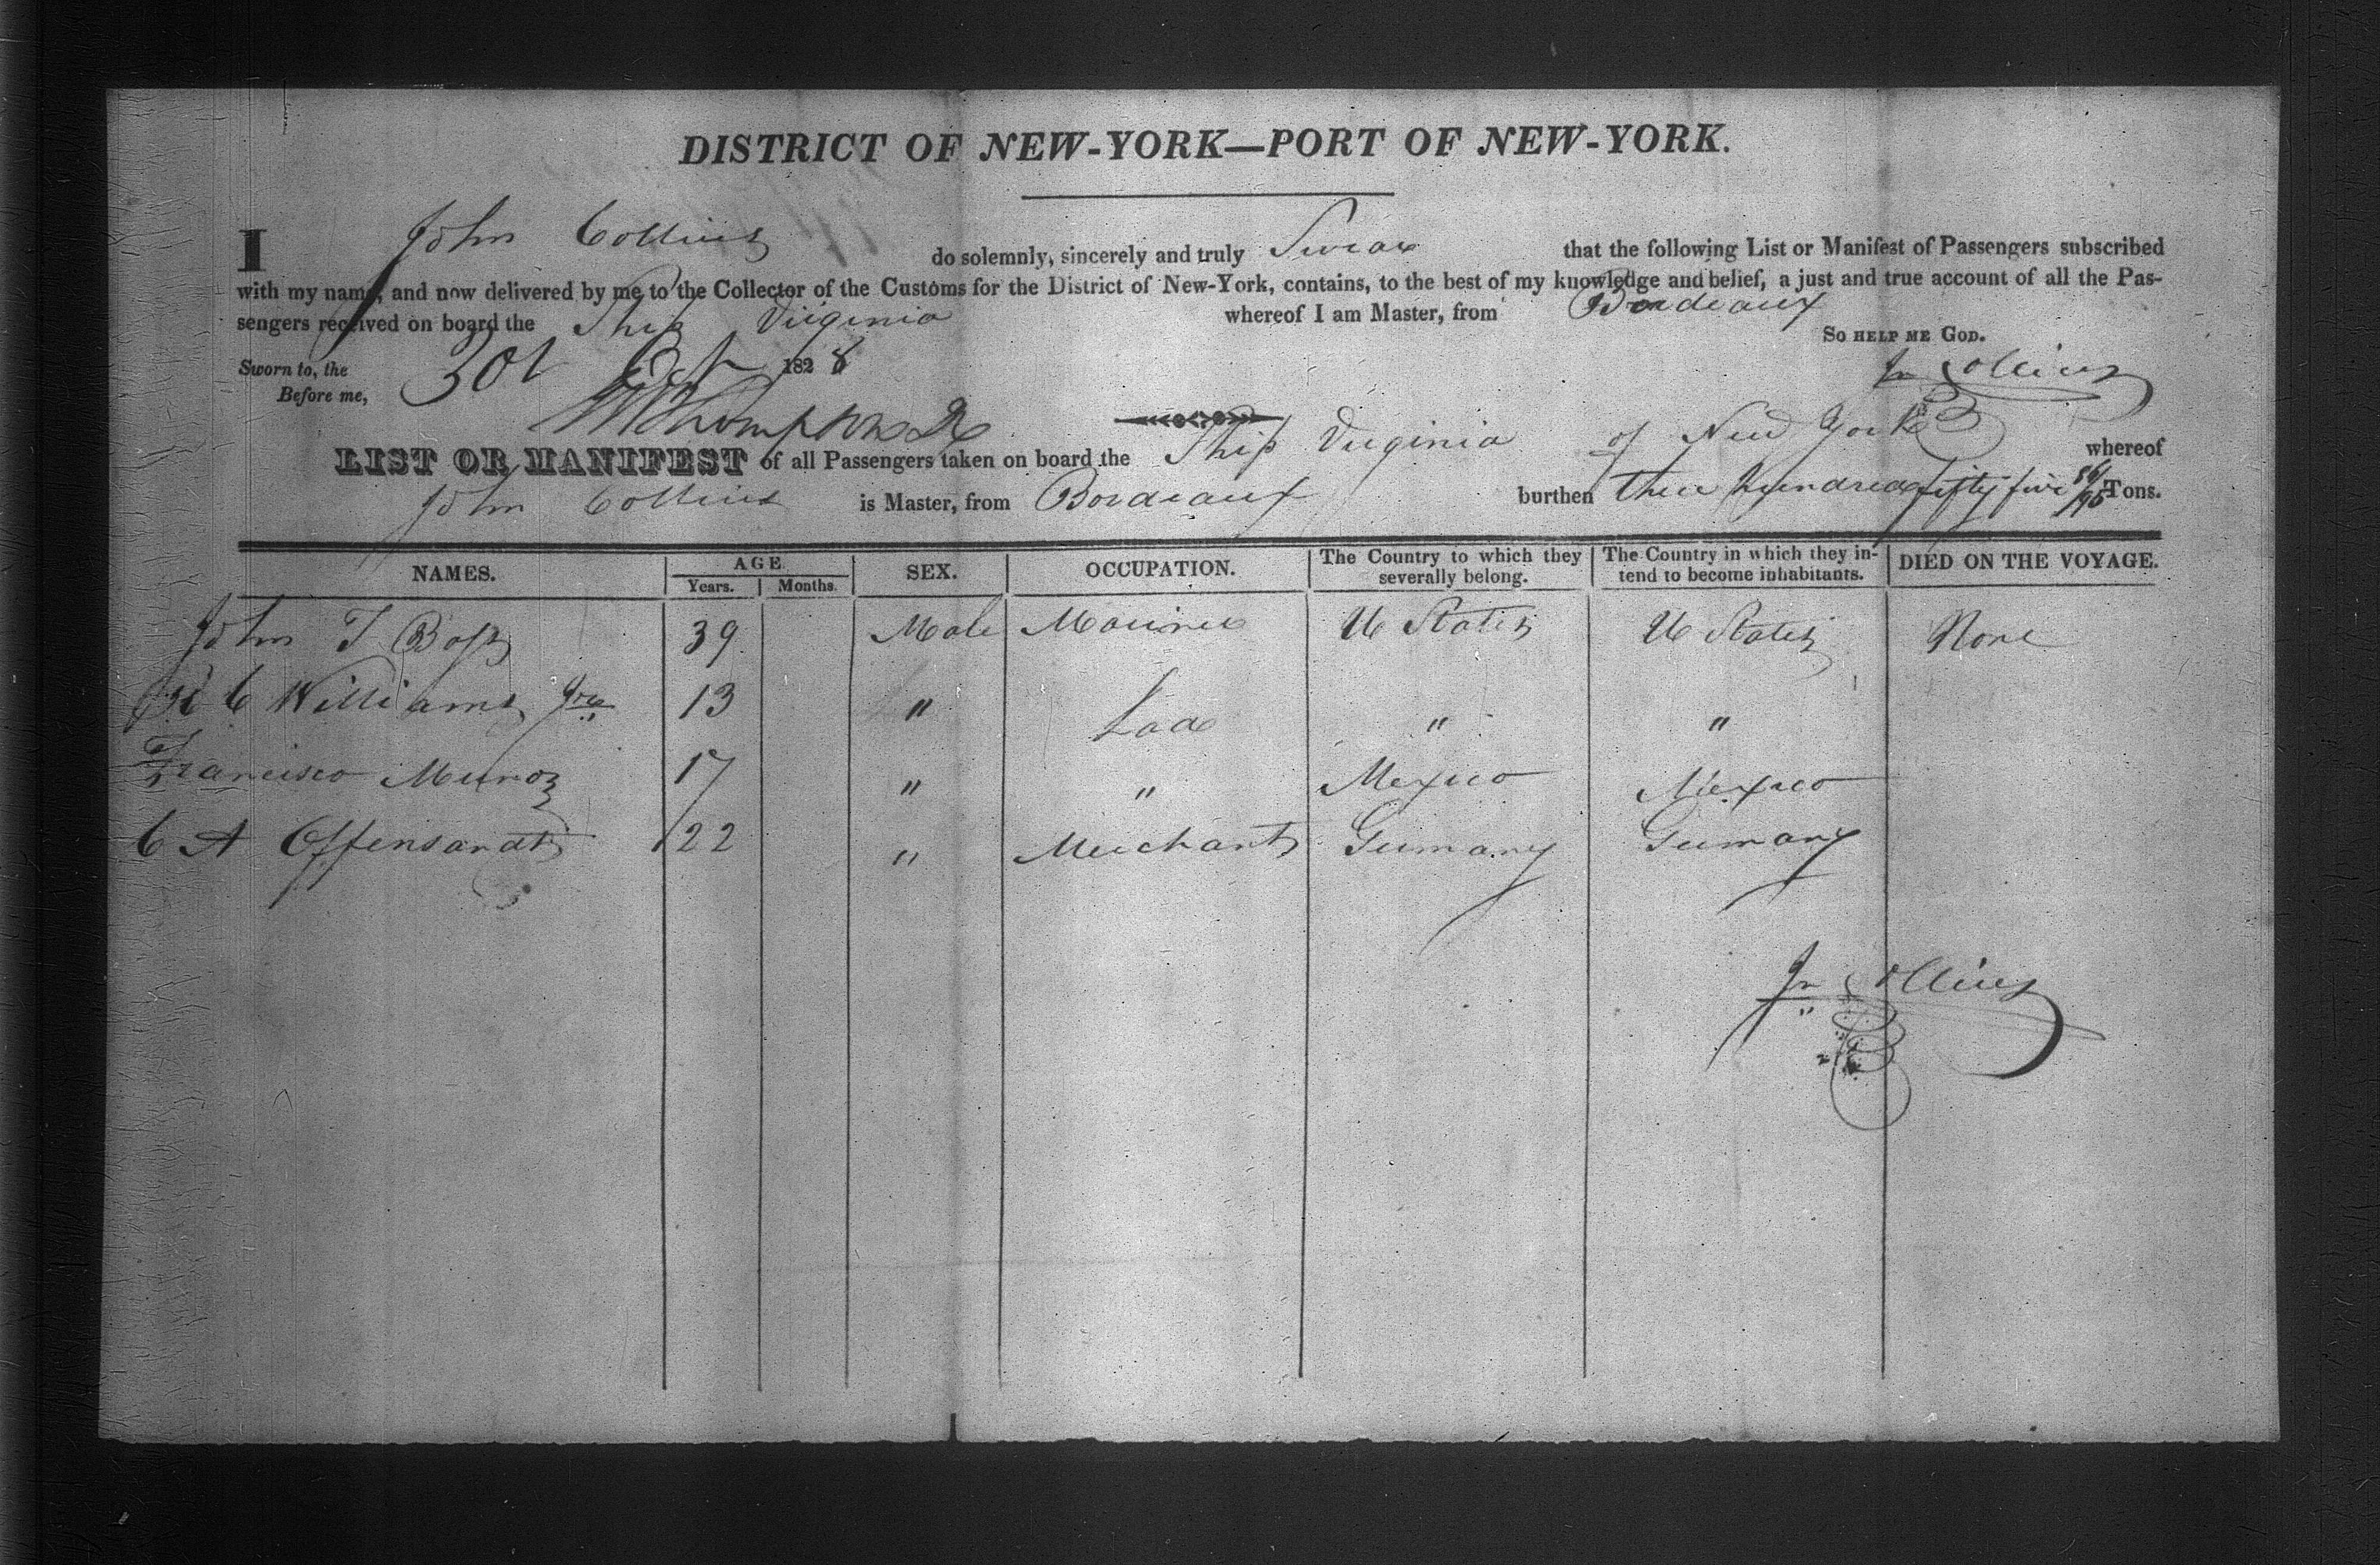 DISTRICT OF NEW-YORK—PORT OF NEW-YORK.
I John Collins do solemnly, sincerely and truly Swear that the following List or Manifest of Passengers subscribed
with my name, and now delivered by me to the Collector of the Customs for the District of New-York, contains, to the best of my knowledge and belief, a just and true account of all the Pas-
sengers received on board the Ship Virginia whereof I am Master, from Bordeaux
So help me God.
Sworn to, the 30 1828 Jn Collins
Before me, Thompson
LIST OR MANIFEST of all Passengers taken on board the Ship Virginia of New York whereof
John Collins is Master, from Bordeaux burthen three hundred fifty five Tons.
NAMES. AGE. SEX. OCCUPATION. The Country to which they severally belong. The Country in which they in-tend to become inhabitants. DIED ON THE VOYAGE.
Years. Months.
John T Boss 39 Male Mariner U States U States None
C Williams Jr 13 " Lad " "
Francisco Munoz 17 " " Mexico Mexico
C A Offensandt 22 " Merchant Germany Germany
Jn Collins